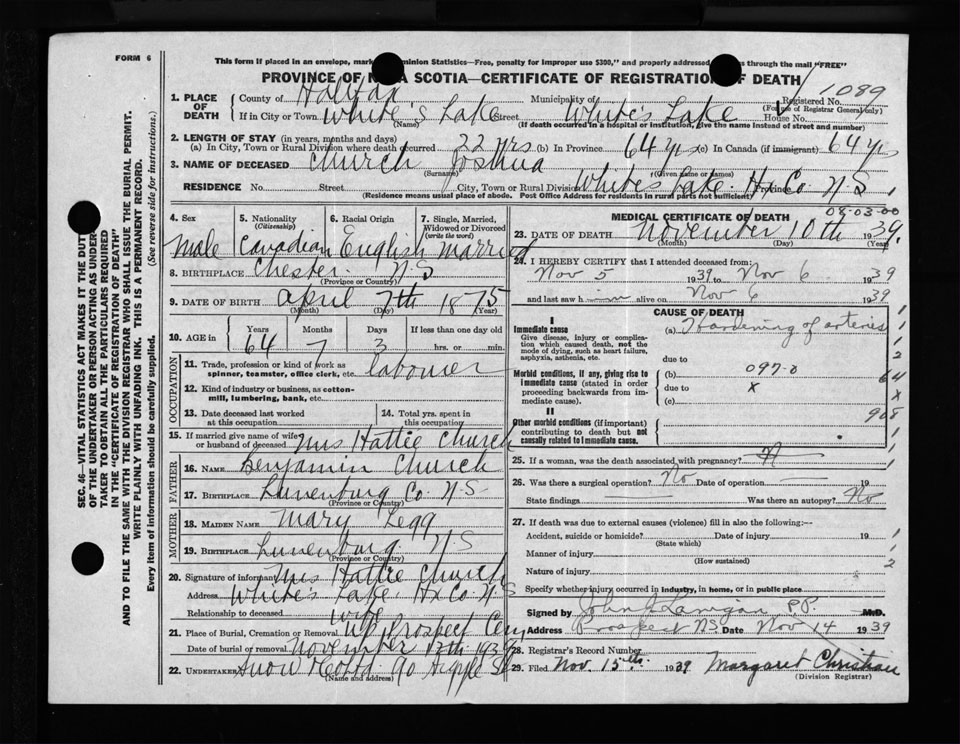 FORM 6
This form if placed in an envelope, marked Dominion Statistics—Free, penalty for improper use $300," and properly addressed passes through the mail "FREE"
PROVINCE OF NOVA SCOTIA—CERTIFICATE OF REGISTRATION OF DEATH
1089
1. PLACE OF DEATH
County of Halifax Municipality of Registered No.
(For use of Registrar General only)
If in City or Town White's Lake Street White's Lake House No.
(Name) (If death occurred in a hospital or institution, give the name instead of street and number)
2. LENGTH OF STAY (in years, months and days)
(a) In City, Town or Rural Division where death occurred 22 yrs (b) In Province 64 yrs (c) In Canada (if immigrant) 64 yrs
3. NAME OF DECEASED Church Joshua
(Surname) (Given name or names)
RESIDENCE No. Street City, Town or Rural Division White's Lake. Hx Co. Province N.S.
(Residence means usual place of abode. Post Office Address for residents in rural parts not sufficient)
4. Sex
Male
5. Nationality (Citizenship)
Canadian
6. Racial Origin
English
7. Single, Married, Widowed or Divorced (write the word)
Married
8. BIRTHPLACE Chester. N.S
(Province or Country)
9. DATE OF BIRTH April 7th 1875
(Month) (Day) (Year)
10. AGE in
Years Months Days If less than one day old
64 7 3 hrs. or min.
OCCUPATION
11. Trade, profession or kind of work as spinner, teamster, office clerk, etc. labourer
12. Kind of industry or business, as cotton-mill, lumbering, bank, etc.
13. Date deceased last worked at this occupation
14. Total yrs. spent in this occupation
15. If married give name of wife or husband of deceased Mrs Hattie Church
FATHER
16. NAME Benjamin Church
17. BIRTHPLACE Lunenburg Co. N.S
(Province or Country)
MOTHER
18. MAIDEN NAME Mary Legg
19. BIRTHPLACE Lunenburg N S
(Province or Country)
20. Signature of informant Mrs Hattie Church
Address White's Lake. Hx Co. N.S
Relationship to deceased wife
21. Place of Burial, Cremation or Removal Prospect Cem
Date of burial or removal November 12th 1939
22. UNDERTAKER Snow & Co Ltd. 90 Argyle St
(Name and address)
MEDICAL CERTIFICATE OF DEATH
08-03-00
23. DATE OF DEATH November 10th 1939
(Month) (Day) (Year)
24. I HEREBY CERTIFY that I attended deceased from:
Nov 5 1939 to Nov 6 1939
and last saw him alive on Nov 6 1939
CAUSE OF DEATH
I
Immediate cause
Give disease, injury or complication which caused death, not the mode of dying, such as heart failure, asphyxia, asthenia, etc.
(a) Hardening of arteries
due to
Morbid conditions, if any, giving rise to immediate cause (stated in order proceeding backwards from immediate cause).
(b) 097-0
due to x
(c)
II
Other morbid conditions (if important) contributing to death but not causally related to immediate cause.
25. If a woman, was the death associated with pregnancy?
26. Was there a surgical operation? No Date of operation
State findings Was there an autopsy? No
27. If death was due to external causes (violence) fill in also the following:—
Accident, suicide or homicide? Date of injury 19
(State which)
Manner of injury
(How sustained)
Nature of injury
Specify whether injury occurred in industry, in home, or in public place
Signed by John Lanigan P.P. M.D.
Address Prospect N.S. Date Nov 14 1939
28. Registrar's Record Number
29. Filed Nov. 15th. 1939 Margaret Christian
(Division Registrar)
SEC. 46—VITAL STATISTICS ACT MAKES IT THE DUTY
OF THE UNDERTAKER OR PERSON ACTING AS UNDER-
TAKER TO OBTAIN ALL THE PARTICULARS REQUIRED
IN THE "CERTIFICATE OF REGISTRATION OF DEATH"
AND TO FILE THE SAME WITH THE DIVISION REGISTRAR WHO SHALL ISSUE THE BURIAL PERMIT.
WRITE PLAINLY WITH UNFADING INK. THIS IS A PERMANENT RECORD.
Every item of information should be carefully supplied. (See reverse side for instructions.)